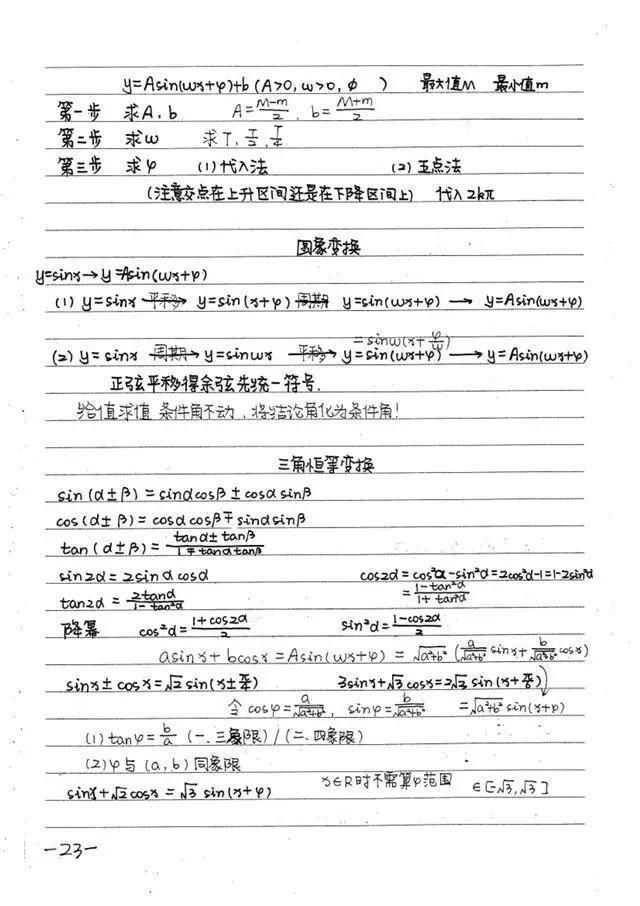 y=Asin(ωx+φ)+b (A>0, ω>0, ϕ ) 最大值M 最小值m
第一步 求A, b A=\frac{M-m}{2}, b=\frac{M+m}{2}
第二步 求ω 求T, \frac{T}{2}, \frac{T}{4}
第三步 求φ (1)代入法 (2)五点法
(注意交点在上升区间还是在下降区间上) 代入2kπ
图象变换
y=sinx→y=Asin(ωx+φ)
(1) y=sinx 平移→ y=sin(x+φ) 周期 y=sin(ωx+φ) → y=Asin(ωx+φ)
=sinω(x+\frac{φ}{ω})
(2) y=sinx 周期→ y=sinωx 平移→ y=sin(ωx+φ) → y=Asin(ωx+φ)
正弦平移得余弦先统一符号.
给值求值 条件角不动, 将结论角化为条件角!
三角恒等变换
sin(α±β)=sinαcosβ±cosαsinβ
cos(α±β)=cosαcosβ∓sinαsinβ
tan(α±β)=\frac{tanα±tanβ}{1∓tanαtanβ}
sin2α=2sinαcosα cos2α=cos²α-sin²α=2cos²α-1=1-2sin²α
tan2α=\frac{2tanα}{1-tan²α} =\frac{1-tan²α}{1+tan²α}
降幂 cos²α=\frac{1+cos2α}{2} sin²α=\frac{1-cos2α}{2}
asinx+bcosx=Asin(ωx+φ)=√(a²+b²)(\frac{a}{√(a²+b²)}sinx+\frac{b}{√(a²+b²)}cosx)
sinx±cosx=√2sin(x±\frac{π}{4}) 3sinx+√3cosx=2√3sin(x+\frac{π}{6})
令cosφ=\frac{a}{√(a²+b²)}, sinφ=\frac{b}{√(a²+b²)} =√(a²+b²)sin(x+φ)
(1)tanφ=\frac{b}{a} (一.三象限)/(二.四象限)
(2)φ与(a,b)同象限
sinx+√2cosx=√3sin(x+φ) x∈R时不需算φ范围 ∈[-√3,√3]
-23-